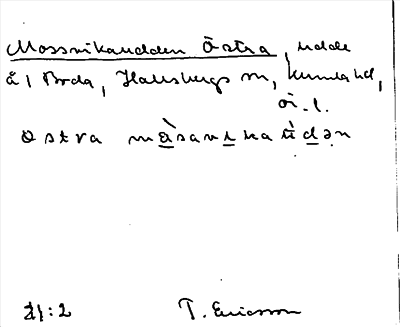 Mossvikaudden Östra, udde
å 1 Boda, Hallsbergs sn, Kumla hd,
Ö.l.
östra måsavikaùdən
21:2 T. Ericsson